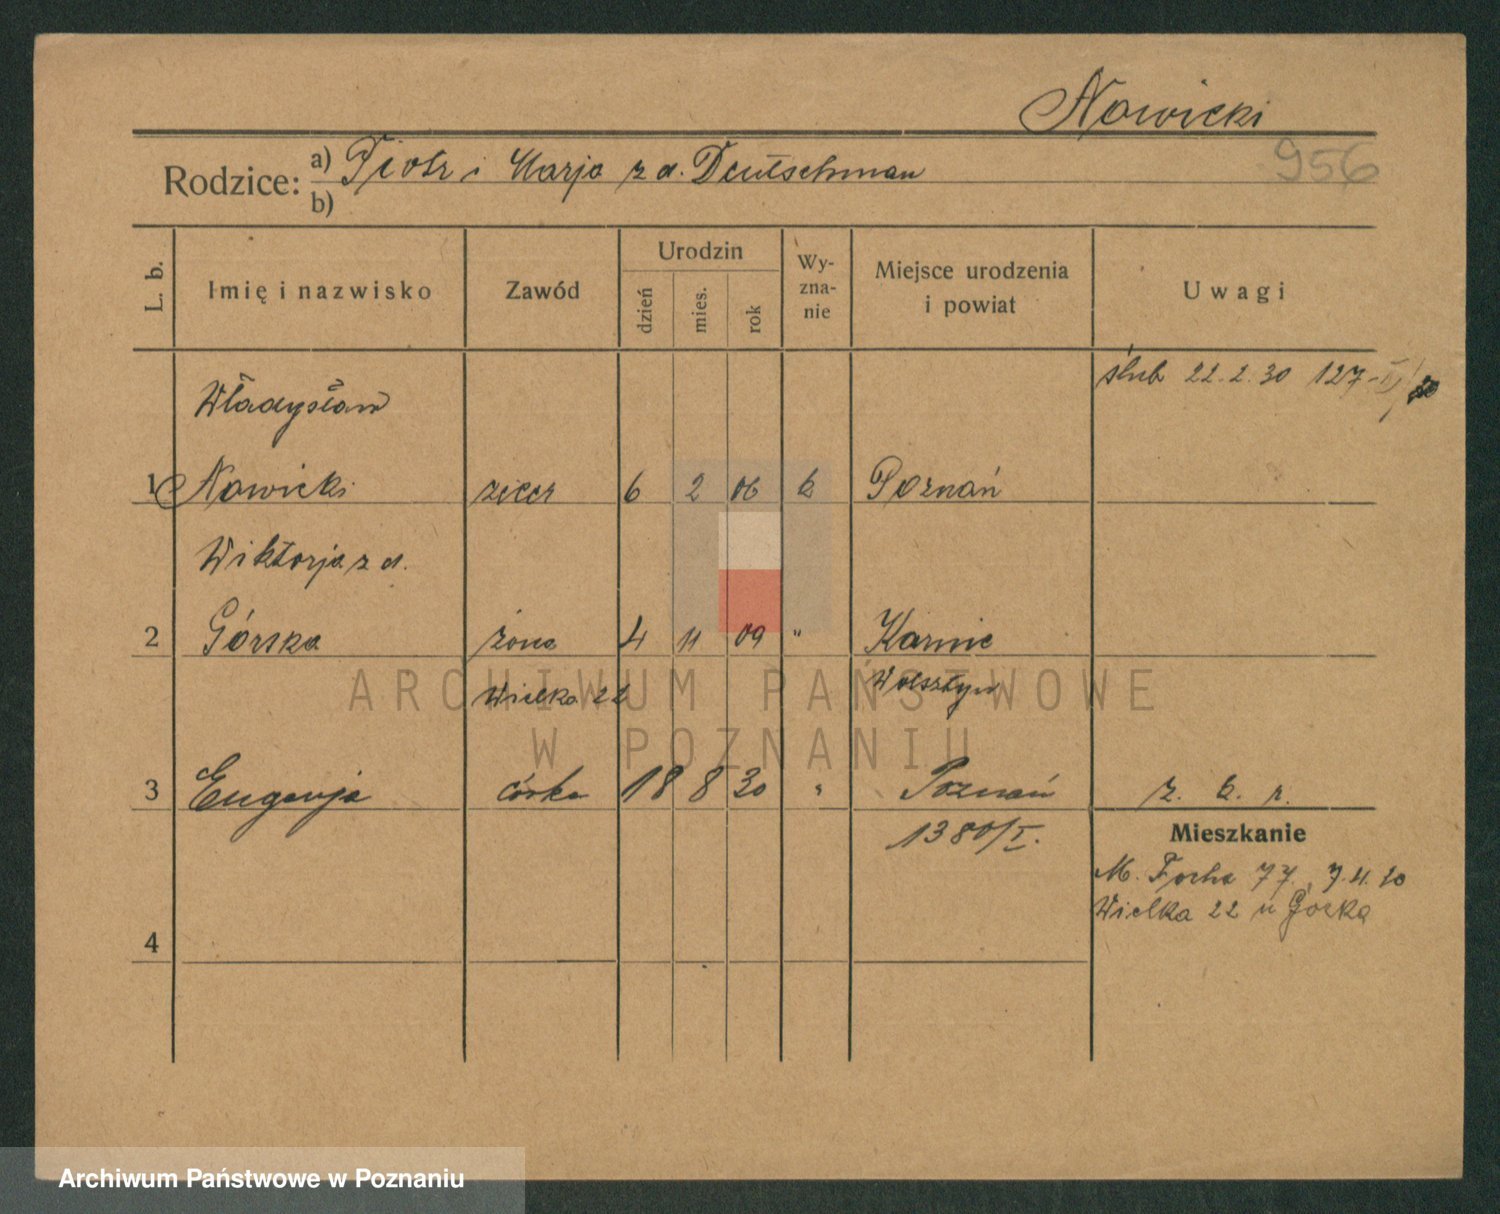 Nowicki
956
Rodzice: a) Piotr i Marja z d. Deutschman
b)
L. b. Imię i nazwisko Zawód Urodzin dzień mies. rok Wyznanie Miejsce urodzenia i powiat Uwagi
ślub 22.2.30 127-II/30
Władysław
1 Nowicki zecer 6 2 06 k Poznań
Wiktorja z d.
2 Górska żona 4 11 09 " Karnic
Wielka 22 Wolsztyn
3 Eugenja córka 18 8 30 " Poznań z. k. r.
1380/I.
Mieszkanie
M. Focha 77, 7.4.30
Wielka 22 u Górka
4
ARCHIWUM PAŃSTWOWE
W POZNANIU
Archiwum Państwowe w Poznaniu